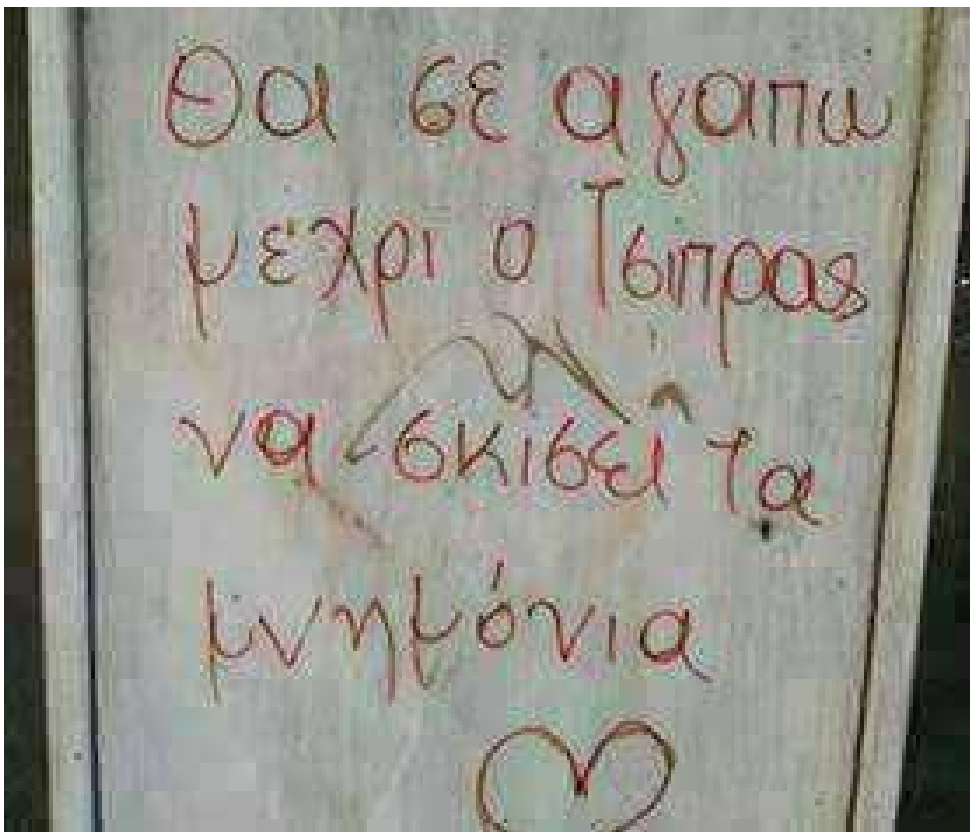 Θα σε αγαπω
μέχρι ο Τσιπρας
να σκισει τα
μνημόνια